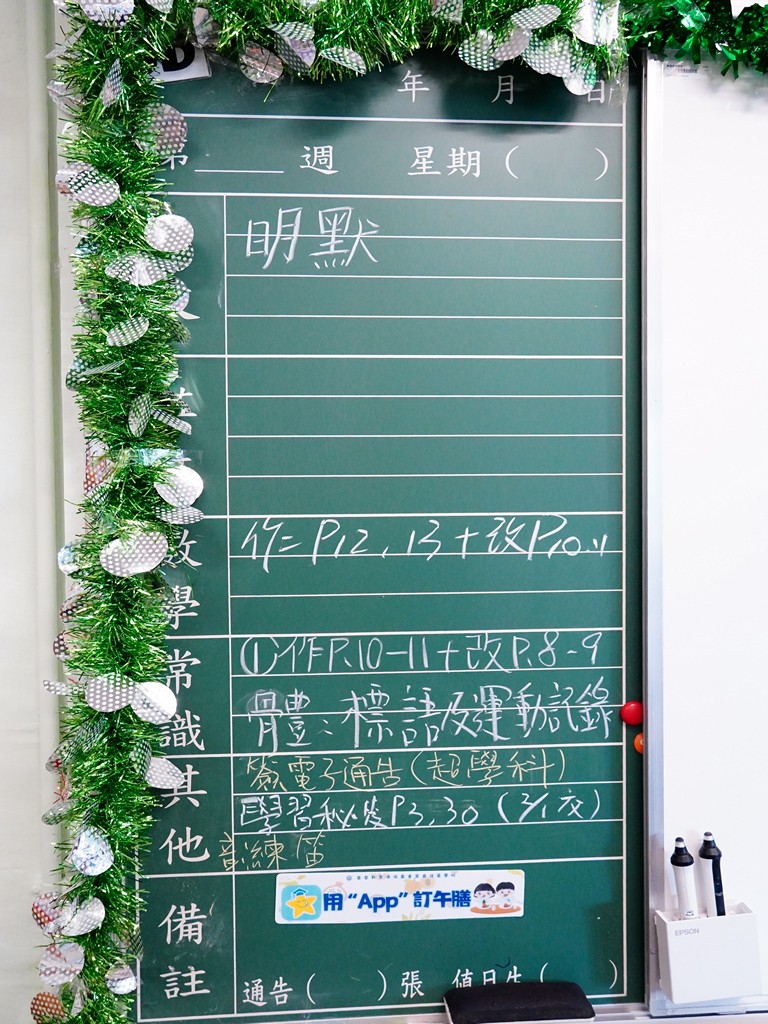 年 月 日
第 週 星期( )
明默
數學
作=P12, 13+改P10-11
常識
①作P.10-11+改P.8-9
體:標語及運動記錄
其他
簽電子通告(超學科)
學習秘笈P3,30(3/1交)
音:練笛
用“App”訂午膳
備註
通告( )張 值日生( )
EPSON